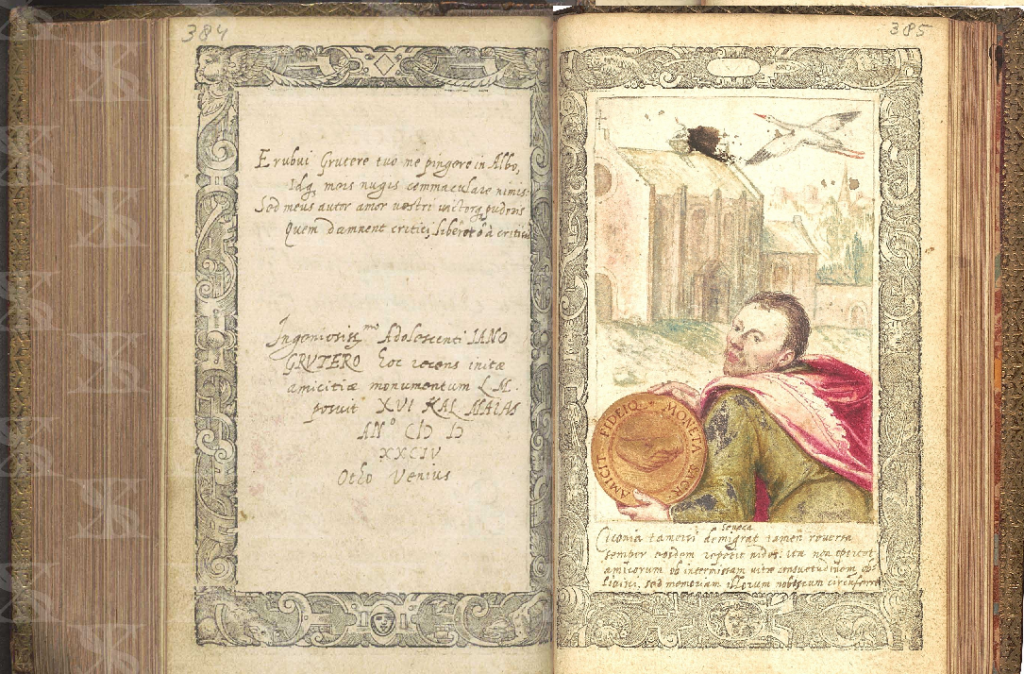 384
Erubui Grutere tuo me pingere in Albo,
Idq, meis nugis commaculare nimis.
Sed meus autor amor vostri victorq, pudoris
Quem damnent critici, liberet
Ingeniosiss.mo Adolescenti IANO
GRVTERO hoc recens initæ
amicitiæ monumentum L. M.
posuit XVI KAL MAIAS
ANo CIƆ IƆ
XXCIV
Otho Venius
385
AMICI FIDEIQ MONETA SACR
Seneca
Ciconia tametsi demigrat tamen reversa
semper eosdem repetit nidos: ita non oportet
amicorum ob intermissam vitæ consuetudinem ob-
livisci, sed memoriam illorum nobiscum circumferre